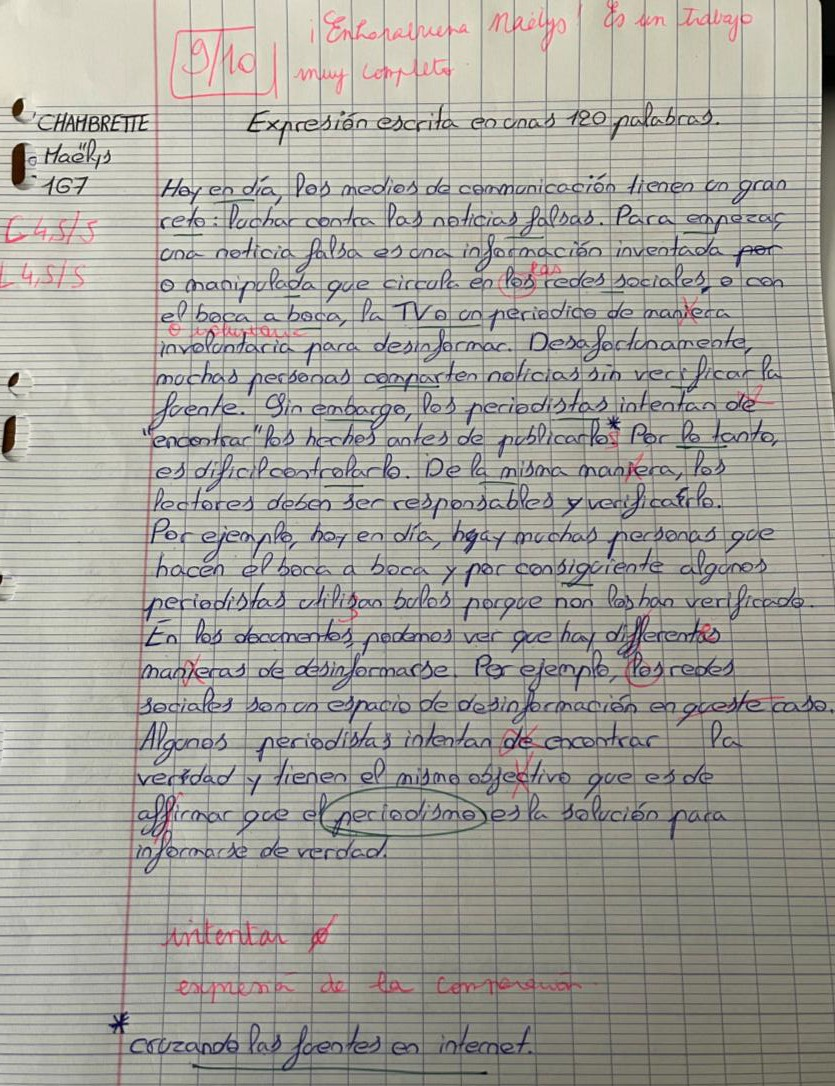 ¡Enhorabuena Maëlys! Es un trabajo
9/10 muy completo
CHAMBRETTE Expresión escrita en unas 120 palabras.
Maëlys
1G7
Hoy en día, los medios de communicación tienen un gran
C 4,5/5
reto: luchar contra las noticias falsas. Para empezar,
una noticia falsa es una información inventada por
L 4,5/5
las
o manipulada que circula en los redes sociales, o con
el boca a boca, la TV o un periodico de maniera
o voluntaria
involontaria para desinformar. Desafortunamente,
muchas personas comparten noticias sin verificar la
fuente. Sin embargo, los periodistas intentan de
"encontrar" los hechos antes de publicarlos* Por lo tanto,
es dificil controlarlo. De la misma maniera, los
lectores deben ser responsables y verificarlo.
Por ejemplo, hoy en día, hay muchas personas que
hacen el boca a boca y por consiguiente algunos
periodistas utilisan bulos porque non los han verificado.
En los documentos, podemos ver que hay differentes
manieras de desinformarse Por ejemplo, los redes
sociales son un espacio de desinformación en queste caso.
Algunos periodistas intentan de encontrar la
verdad y tienen el mismo objectivo que es de
affirmar que el periodismo es la solución para
informarse de verdad.
intentar ø
de la
* cruzando las fuentes en internet.